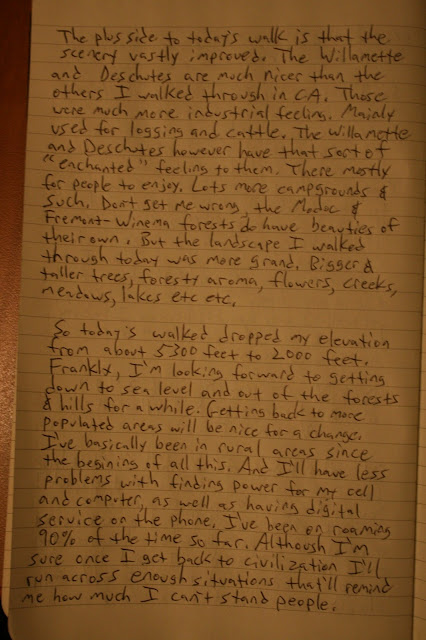 The plus side to today's walk is that the
scenery vastly improved. The Willamette
and Deschutes are much nicer than the
others I walked through in CA. Those
were much more industrial feeling. Mainly
used for logging and cattle. The Willamette
and Deschutes however have that sort of
"enchanted" feeling to them. There mostly
for people to enjoy. Lots more campgrounds &
such. Dont get me wrong, the Modoc &
Fremont-Winema forests do have beauties of
their own. But the landscape I walked
through today was more grand. Bigger &
taller trees, foresty aroma, flowers, creeks,
meadows, lakes etc etc.
So today's walked dropped my elevation
from about 5300 feet to 2000 feet.
Frankly, I'm looking forward to getting
down to sea level and out of the forests
& hills for a while. Getting back to more
populated areas will be nice for a change.
I've basically been in rural areas since
the begining of all this. And I'll have less
problems with finding power for my cell
and computer, as well as having digital
service on the phone. I've been on roaming
90% of the time so far. Although I'm
sure once I get back to civilization I'll
run across enough situations that'll remind
me how much I can't stand people.